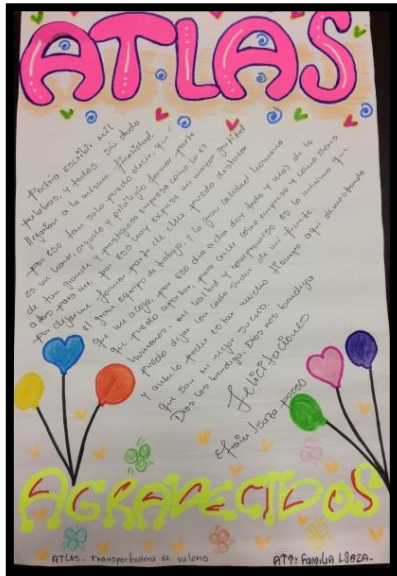 ATLAS
Podría escribir mil
palabras, y todas sin duda
llegarían a la misma finalidad.
Por eso tan solo puedo decir, que
es un honor, orgullo y privilegio formar parte
de tan grande y prestigiosa empresa como lo es
atlas para mi, por eso hoy expreso mi mayor gratitud
por dejarme formar parte de ella puedo destacar
el gran equipo de trabajo, y la gran calidad humana
que me aloja, por eso día a día doy todo y más de lo
que puedo aportar, para crecer como empresa y como seres
humanos, mi lealtad y compromiso es lo máximo que
puedo dejar con cada sudor de mi frente
y anhelo poder estar mucho tiempo aquí demostrando
que soy mi mejor sueño.
Dios los bendiga, Dios nos bendiga
Felicitaciones
Efraín Isaza Posso
AGRADECIDOS
ATLAS - Transportadora de valores
ATT: Familia ISAZA.